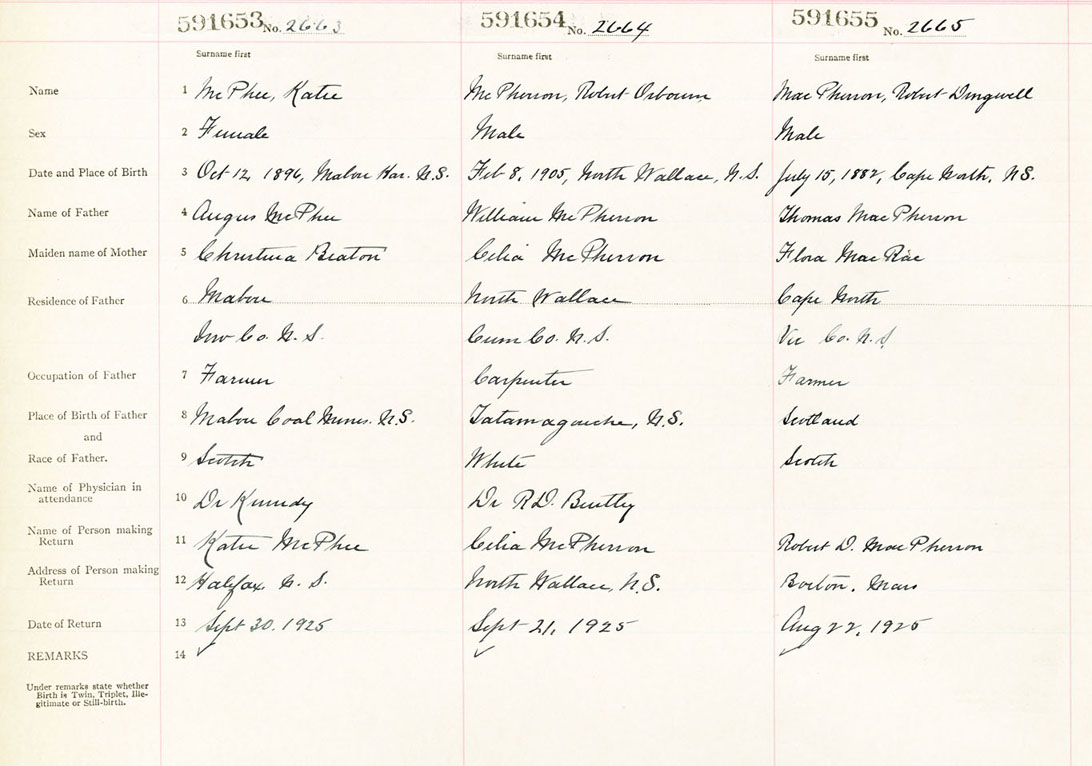 591653 No. 2663 591654 No. 2664 591655 No. 2665
Surname first Surname first Surname first
Name 1 McPhee, Katie McPherson, Robert Osbourn MacPherson, Robert Dingwell
Sex 2 Female Male Male
Date and Place of Birth 3 Oct 12, 1896, Mabou Har. N.S. Feb 8, 1905, North Wallace, N.S. July 15, 1882, Cape North, N.S.
Name of Father 4 Angus McPhee William McPherson Thomas MacPherson
Maiden name of Mother 5 Christina Beaton Celia McPherson Flora MacRae
Residence of Father 6 Mabou North Wallace Cape North
Inv Co. N.S. Cum Co. N.S. Vic Co. N.S.
Occupation of Father 7 Farmer Carpenter Farmer
Place of Birth of Father 8 Mabou Coal Mines. N.S. Tatamagouche, N.S. Scotland
and
Race of Father. 9 Scotch White Scotch
Name of Physician in
attendance 10 Dr Kennedy Dr R.D. Bentley
Name of Person making
Return 11 Katie McPhee Celia McPherson Robert D. MacPherson
Address of Person making
Return 12 Halifax, N.S. North Wallace, N.S. Boston, Mass
Date of Return 13 Sept 30. 1925 Sept 21, 1925 Aug 22, 1925
REMARKS 14
Under remarks state whether
Birth is Twin, Triplet, Ille-
gitimate or Still-birth.